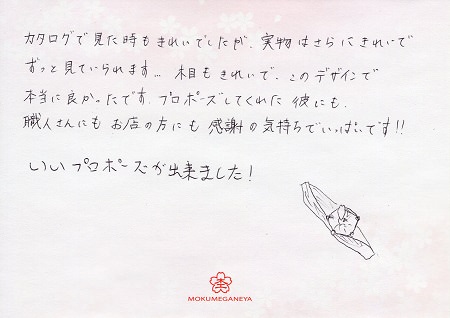 カタログで見た時もきれいでしたが、実物はさらにきれいで
ずっと見ていられます… 木目もきれいで、このデザインで
本当に良かったです。プロポーズしてくれた彼にも、
職人さんにもお店の方にも感謝の気持ちでいっぱいです!!
いいプロポーズが出来ました!
MOKUMEGANEYA